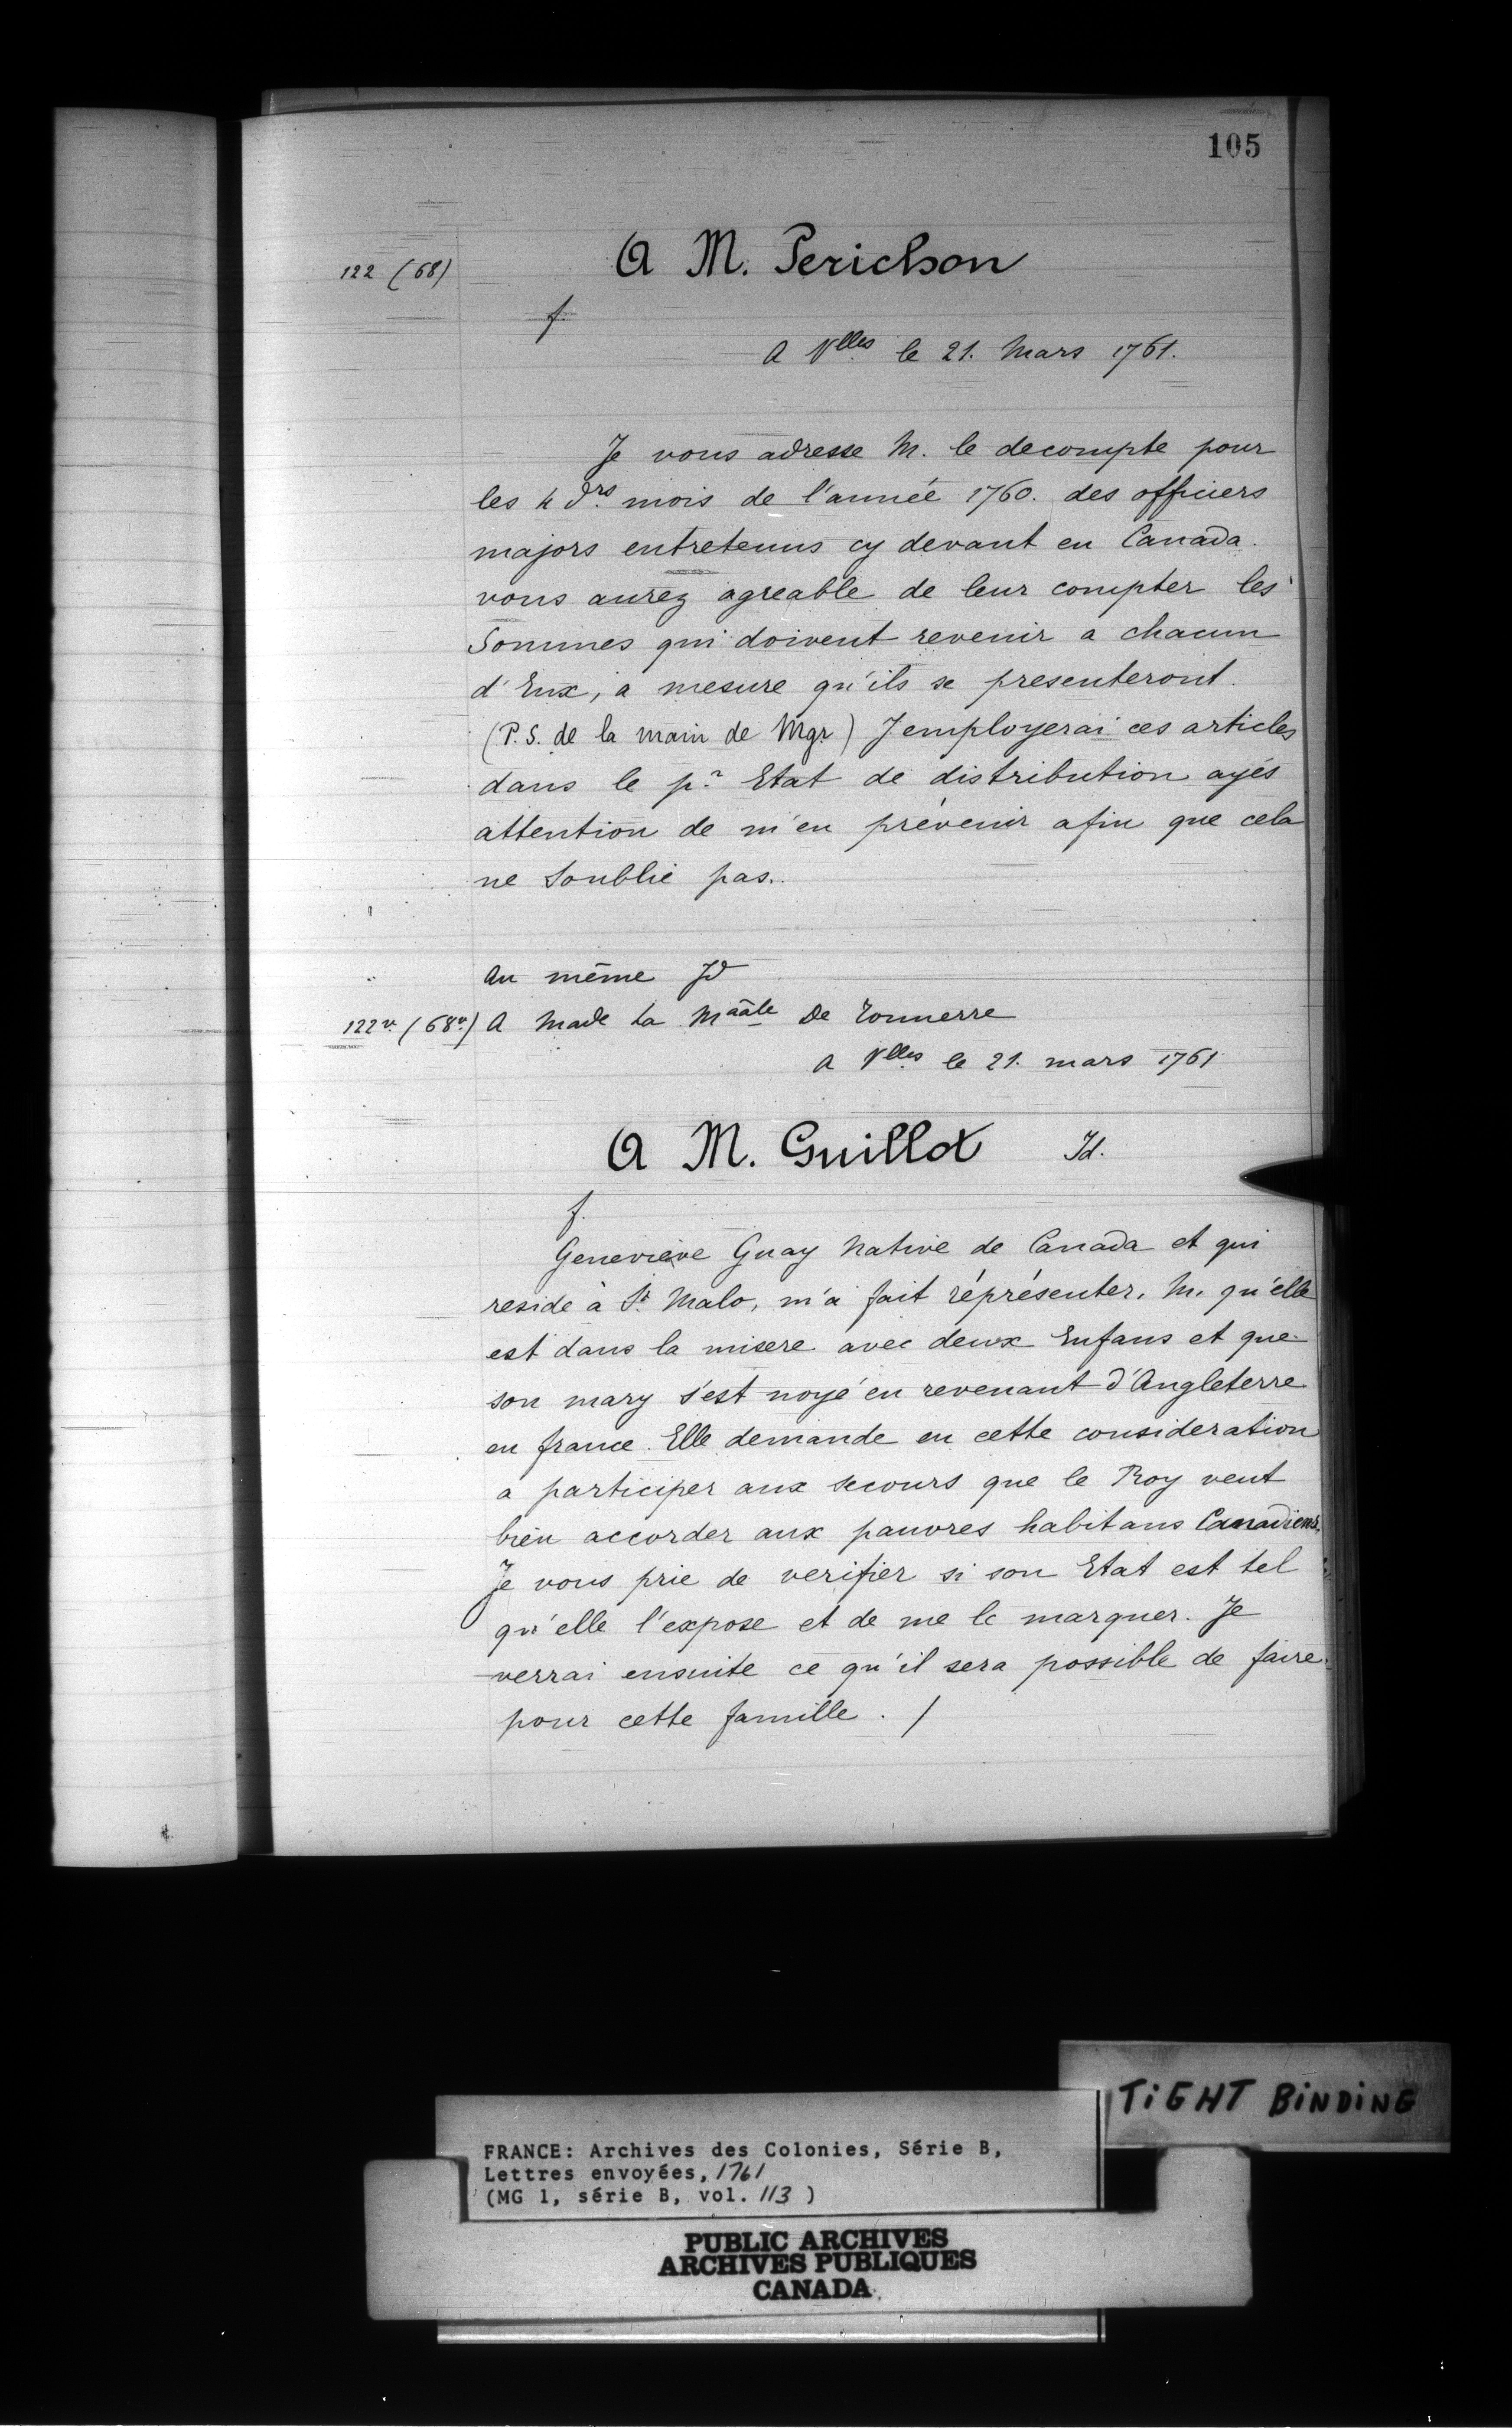 105
122 (68)
A M. Perichon
f.
A Vlles le 21. Mars 1761.
Je vous adresse M. le decompte pour
les 4 drs mois de l'année 1760. des officiers
majors entretenus cy devant en Canada.
vous aurez agreable de leur compter les
Sommes qui doivent revenir a chacun
d'Eux, a mesure qu'ils se presenteront.
(P.S. de la main de Mgr.) J'employerai ces articles
dans le pr. Etat de distribution ayés
attention de m'en prévenir afin que cela
ne Soublie pas..
Au même Id
122v. (68v.) A Made La Maâle De Tonnerre
A Vlles le 21. mars 1761
A M. Guillot Id.
f.
Genevieve Guay Native de Canada et qui
reside à St. Malo, m'a fait réprésenter. M. qu'elle
est dans la misere avec deux Enfans et que
son mary s'est noyé en revenant d'Angleterre
en france. Elle demande en cette consideration
a participer aux secours que le Roy veut
bien accorder aux pauvres habitans Canadiens.
Je vous prie de verifier si son Etat est tel
qu'elle l'expose et de me le marquer. Je
verrai ensuite ce qu'il sera possible de faire
pour cette famille . /
TiGHT BiNDiNG
FRANCE: Archives des Colonies, Série B,
Lettres envoyées, 1761
(MG 1, série B, vol. 113 )
PUBLIC ARCHIVES
ARCHIVES PUBLIQUES
CANADA